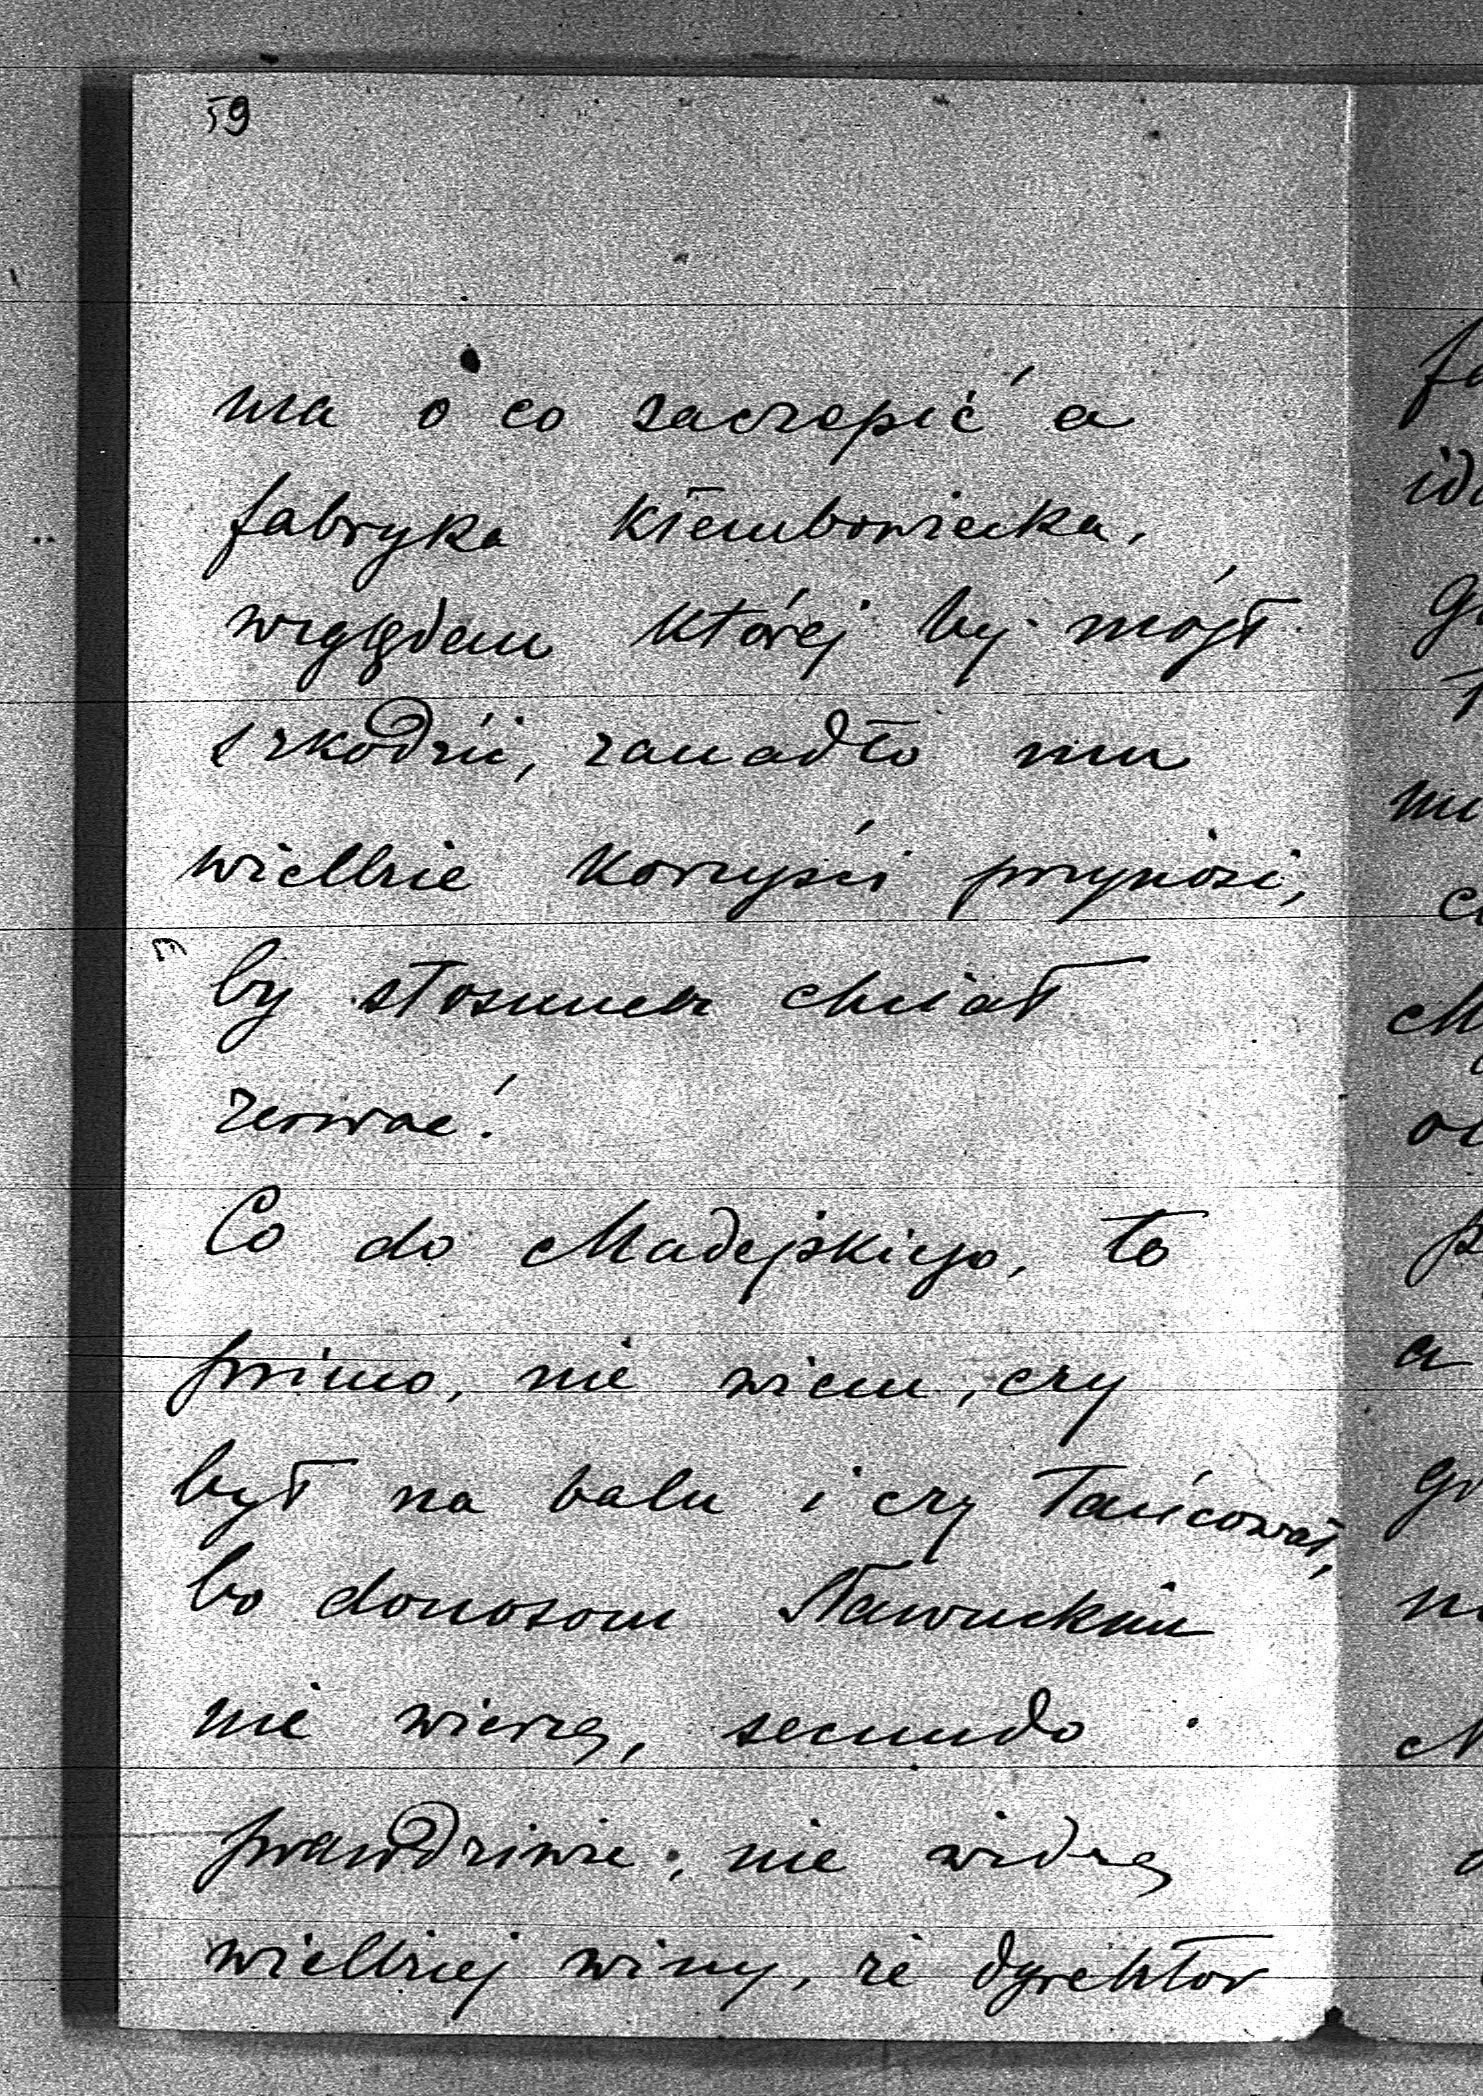 59
ma o co zaczepić a
fabryka Kłembowiecka,
względem której by mógł
szkodzić, zanadto mu
wielkie korzyści przynosi,
by stosunek chciał
zerwać!
Co do Madejskiego, to
primo, nie wiem, czy
był na balu i czy tańcował,
bo donosom Sławuckim
nie wierzę, secundo
prawdziwie, nie widzę
wielkiej winy, że dyrektor